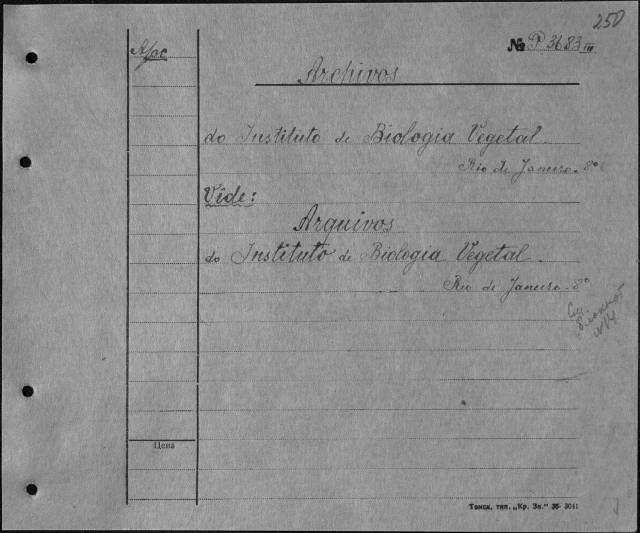 250
№ P 3683 III
Archivos
do Instituto de Biologia Vegetal.
Rio de Janeiro. 8º
Vide:
Arquivos
do Instituto de Biologia Vegetal.
Rio de Janeiro. 8º
См.
№14
Цена
Томск, тип. „Кр. Зн." 36- 3041